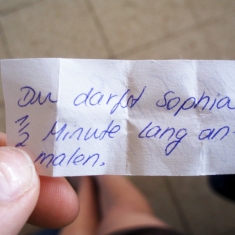 Du darfst Sophia
1/2 Minute lang an-
malen.